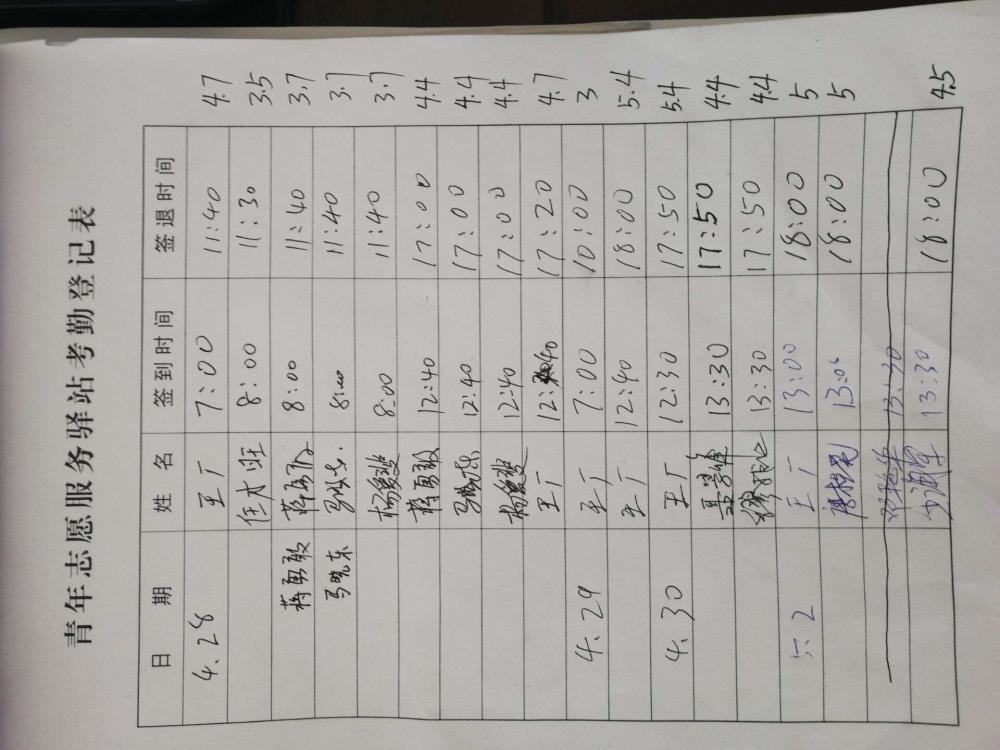 青年志愿服务驿站考勤登记表
日 期 姓 名 签到时间 签退时间
4.28 王厂 7:00 11:40 4.7
任大旺 8:00 11:30 3.5
蒋勇敢 蒋勇敢 8:00 11:40 3.7
马晓东 马晓东 8:00 11:40 3.7
杨雯雯 8:00 11:40 3.7
蒋勇敢 12:40 17:00 4.4
马晓东 12:40 17:00 4.4
杨雯雯 12:40 17:00 4.4
王厂 12:40 17:20 4.7
4.29 王厂 7:00 10:00 3
王厂 12:40 18:00 5.4
4.30 王厂 12:30 17:50 5.4
13:30 17:50 4.4
13:30 17:50 4.4
5.2 王厂 13:00 18:00 5
13:00 18:00 5
13:30
13:30 18:00 4.5